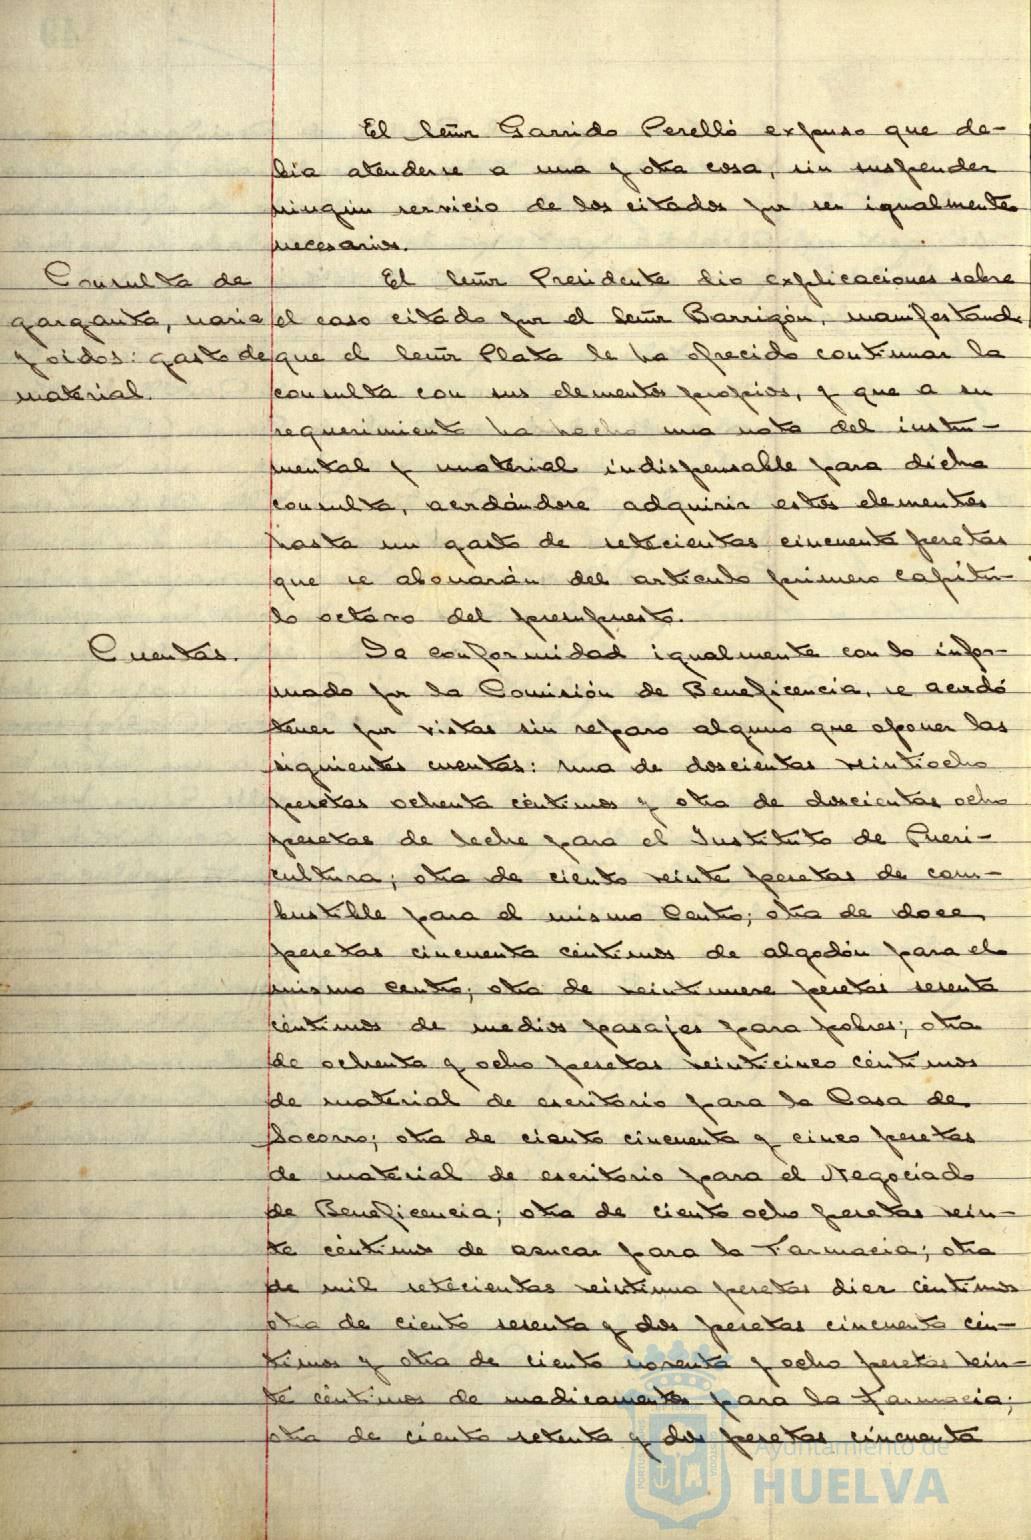 El Señor Garrido Perelló expuso que de-
bía atenderse a una y otra cosa, sin suspender
ningún servicio de los citados por ser igualmente
necesarios.
Consulta de
garganta, nariz
y oidos: gasto de
material.
El Señor Presidente dio explicaciones sobre
el caso citado por el Señor Barrigón, manifestando
que el Señor Plata le ha ofrecido continuar la
consulta con sus elementos propios, y que a su
requerimiento ha hecho una nota del instru-
mental y material indispensable para dicha
consulta, acordándose adquirir estos elementos
hasta un gasto de setecientas cincuenta pesetas
que se abonarán del artículo primero capítu-
lo octavo del presupuesto.
Cuentas.
De conformidad igualmente con lo infor-
mado por la Comisión de Beneficencia, se acordó
tener por vistas sin reparo alguno que oponer las
siguientes cuentas: una de doscientas veintiocho
pesetas ochenta céntimos y otra de doscientas ocho
pesetas de leche para el Instituto de Pueri-
cultura; otra de ciento veinte pesetas de com-
bustible para el mismo Centro; otra de doce
pesetas cincuenta céntimos de algodón para el
mismo centro; otra de veintinueve pesetas sesenta
céntimos de medios pasajes para pobres; otra
de ochenta y ocho pesetas veinticinco céntimos
de material de escritorio para la Casa de
Socorro; otra de ciento cincuenta y cinco pesetas
de material de escritorio para el Negociado
de Beneficencia; otra de ciento ocho pesetas vein-
te céntimos de azucar para la Farmacia; otra
de mil setecientas veintiuna pesetas diez céntimos
otra de ciento sesenta y dos pesetas cincuenta cén-
timos y otra de ciento noventa y ocho pesetas vein-
te céntimos de medicamentos para la Farmacia;
otra de ciento setenta y dos pesetas cincuenta
Ayuntamiento de
HUELVA